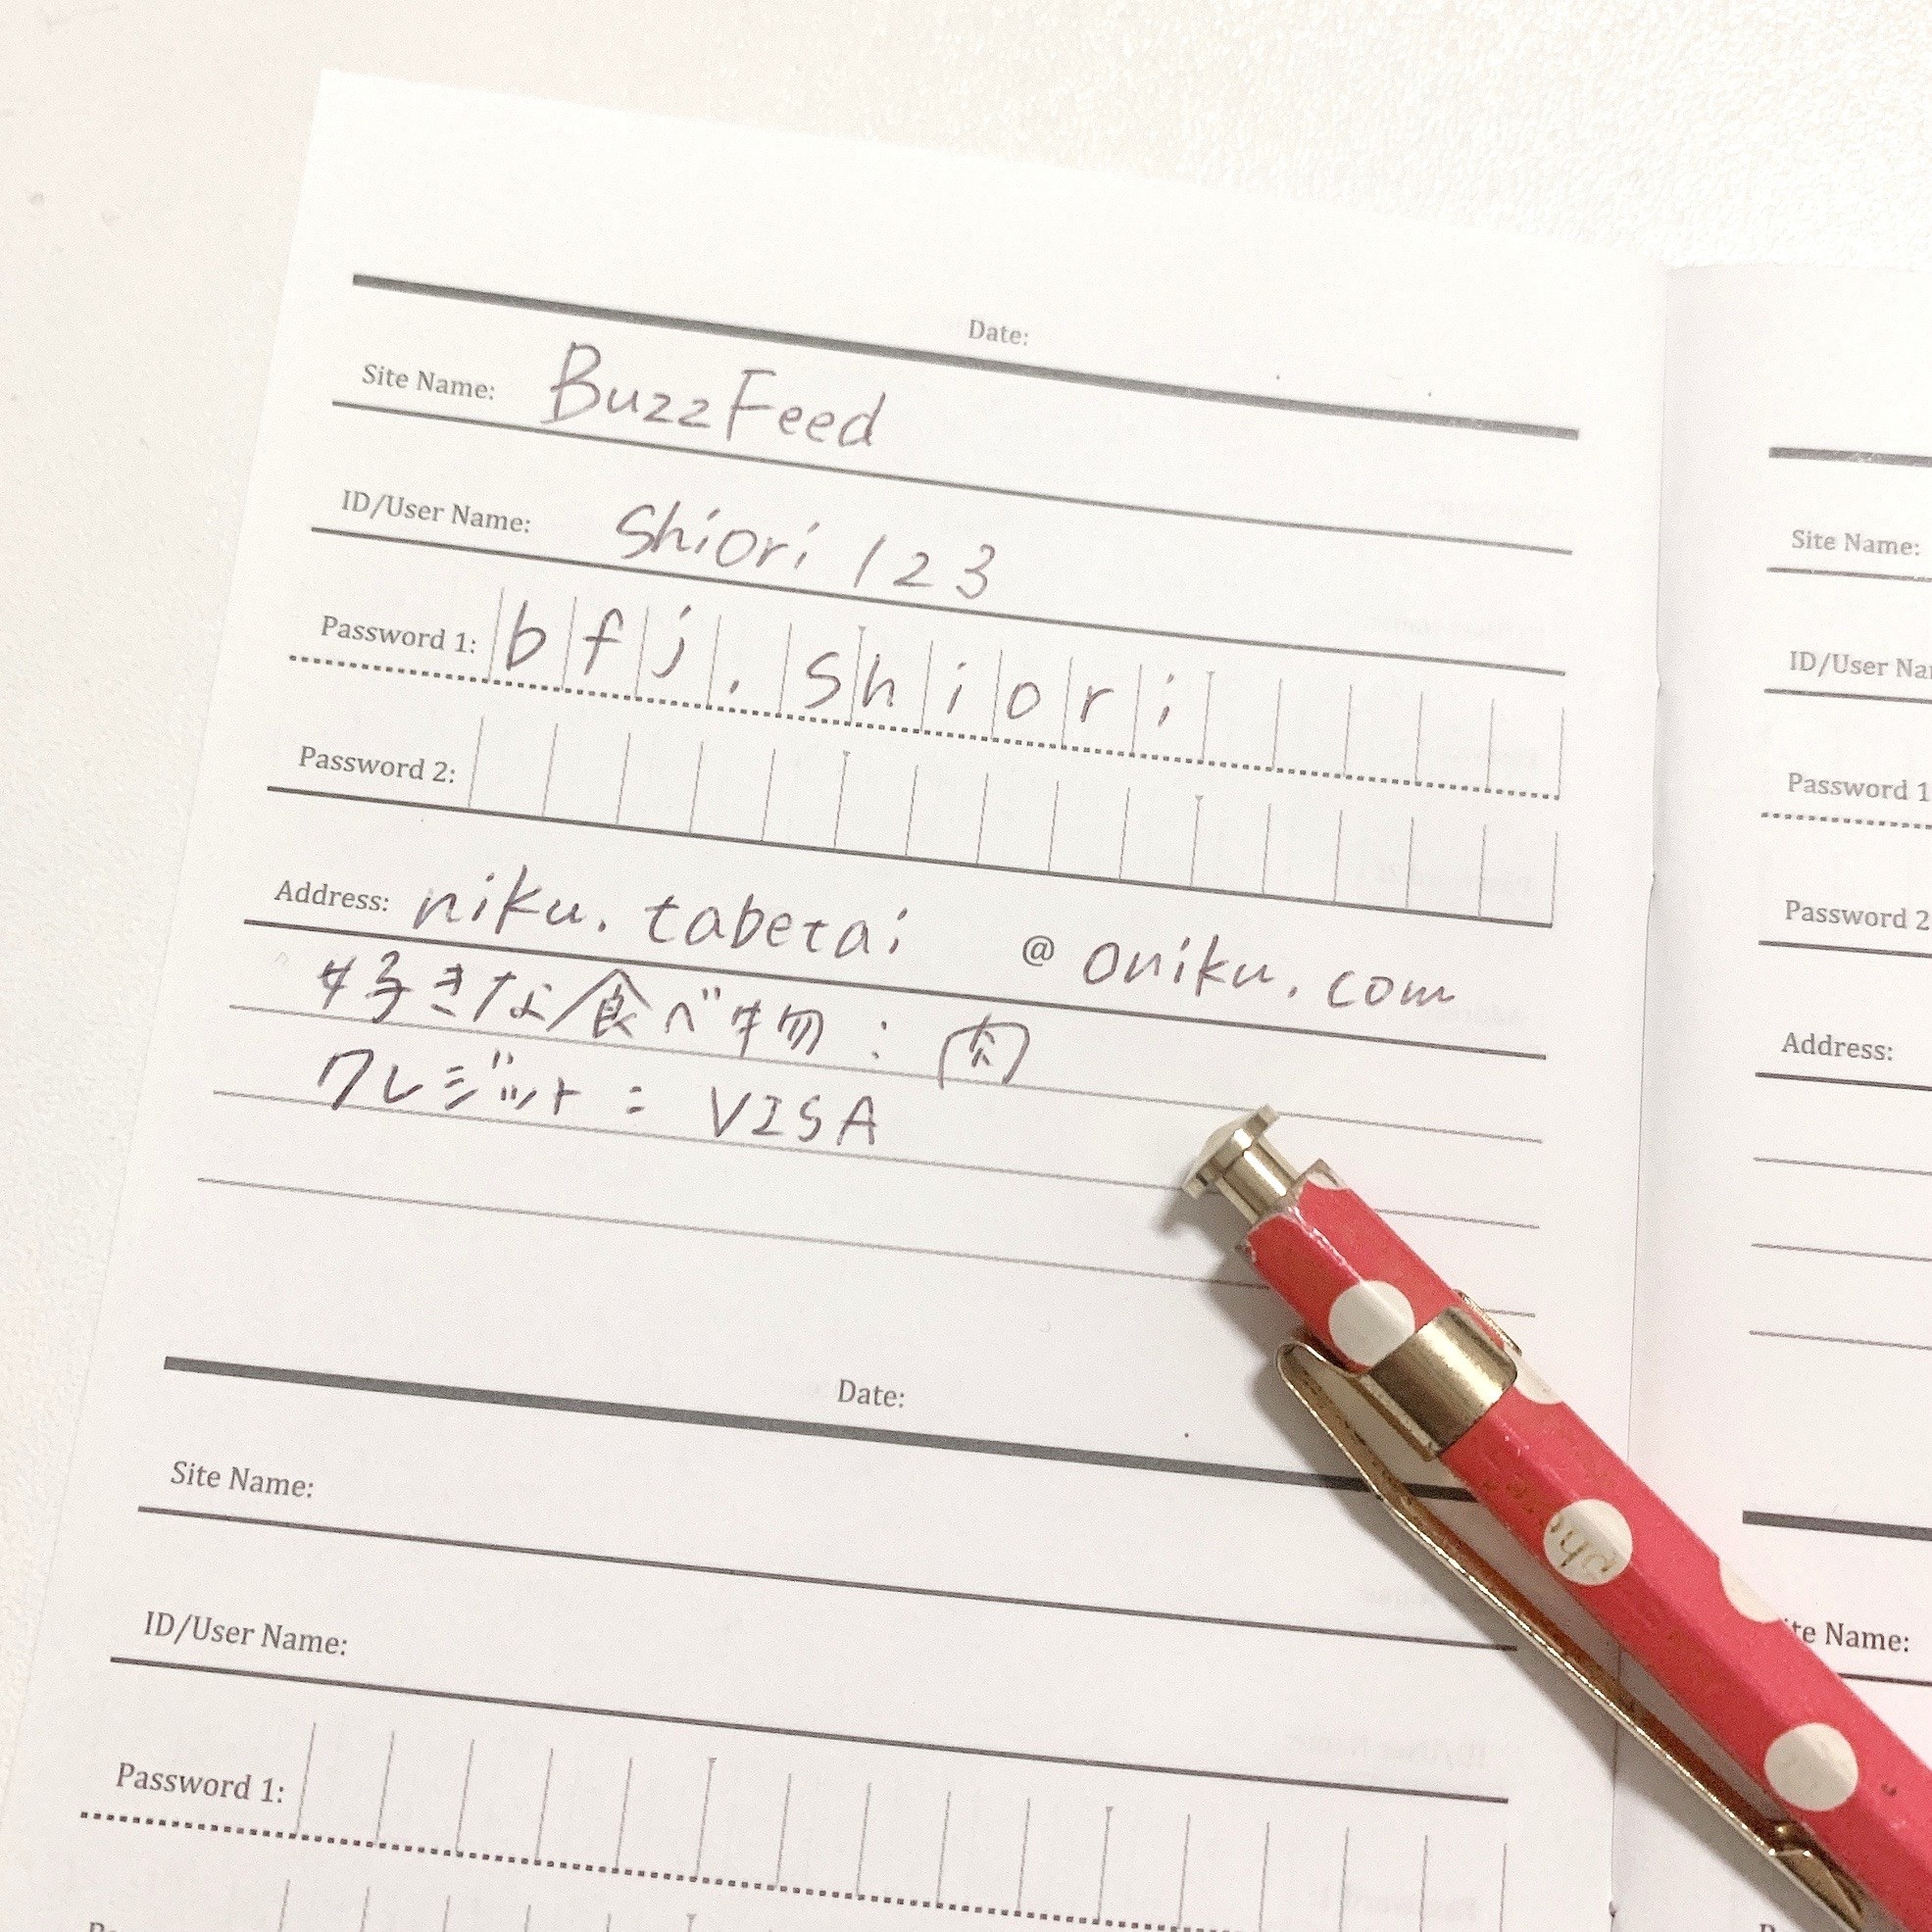 Date:
Site Name: BuzzFeed
ID/User Name: Shiori 123
Password 1: bfj.shiori
Password 2:
Address: niku.tabetai @ oniku.com
好きな食べ物:肉
クレジット:VISA
Date:
Site Name:
ID/User Name:
Password 1:
Site Name:
ID/User Na
Password 1
Password 2
Address:
te Name: